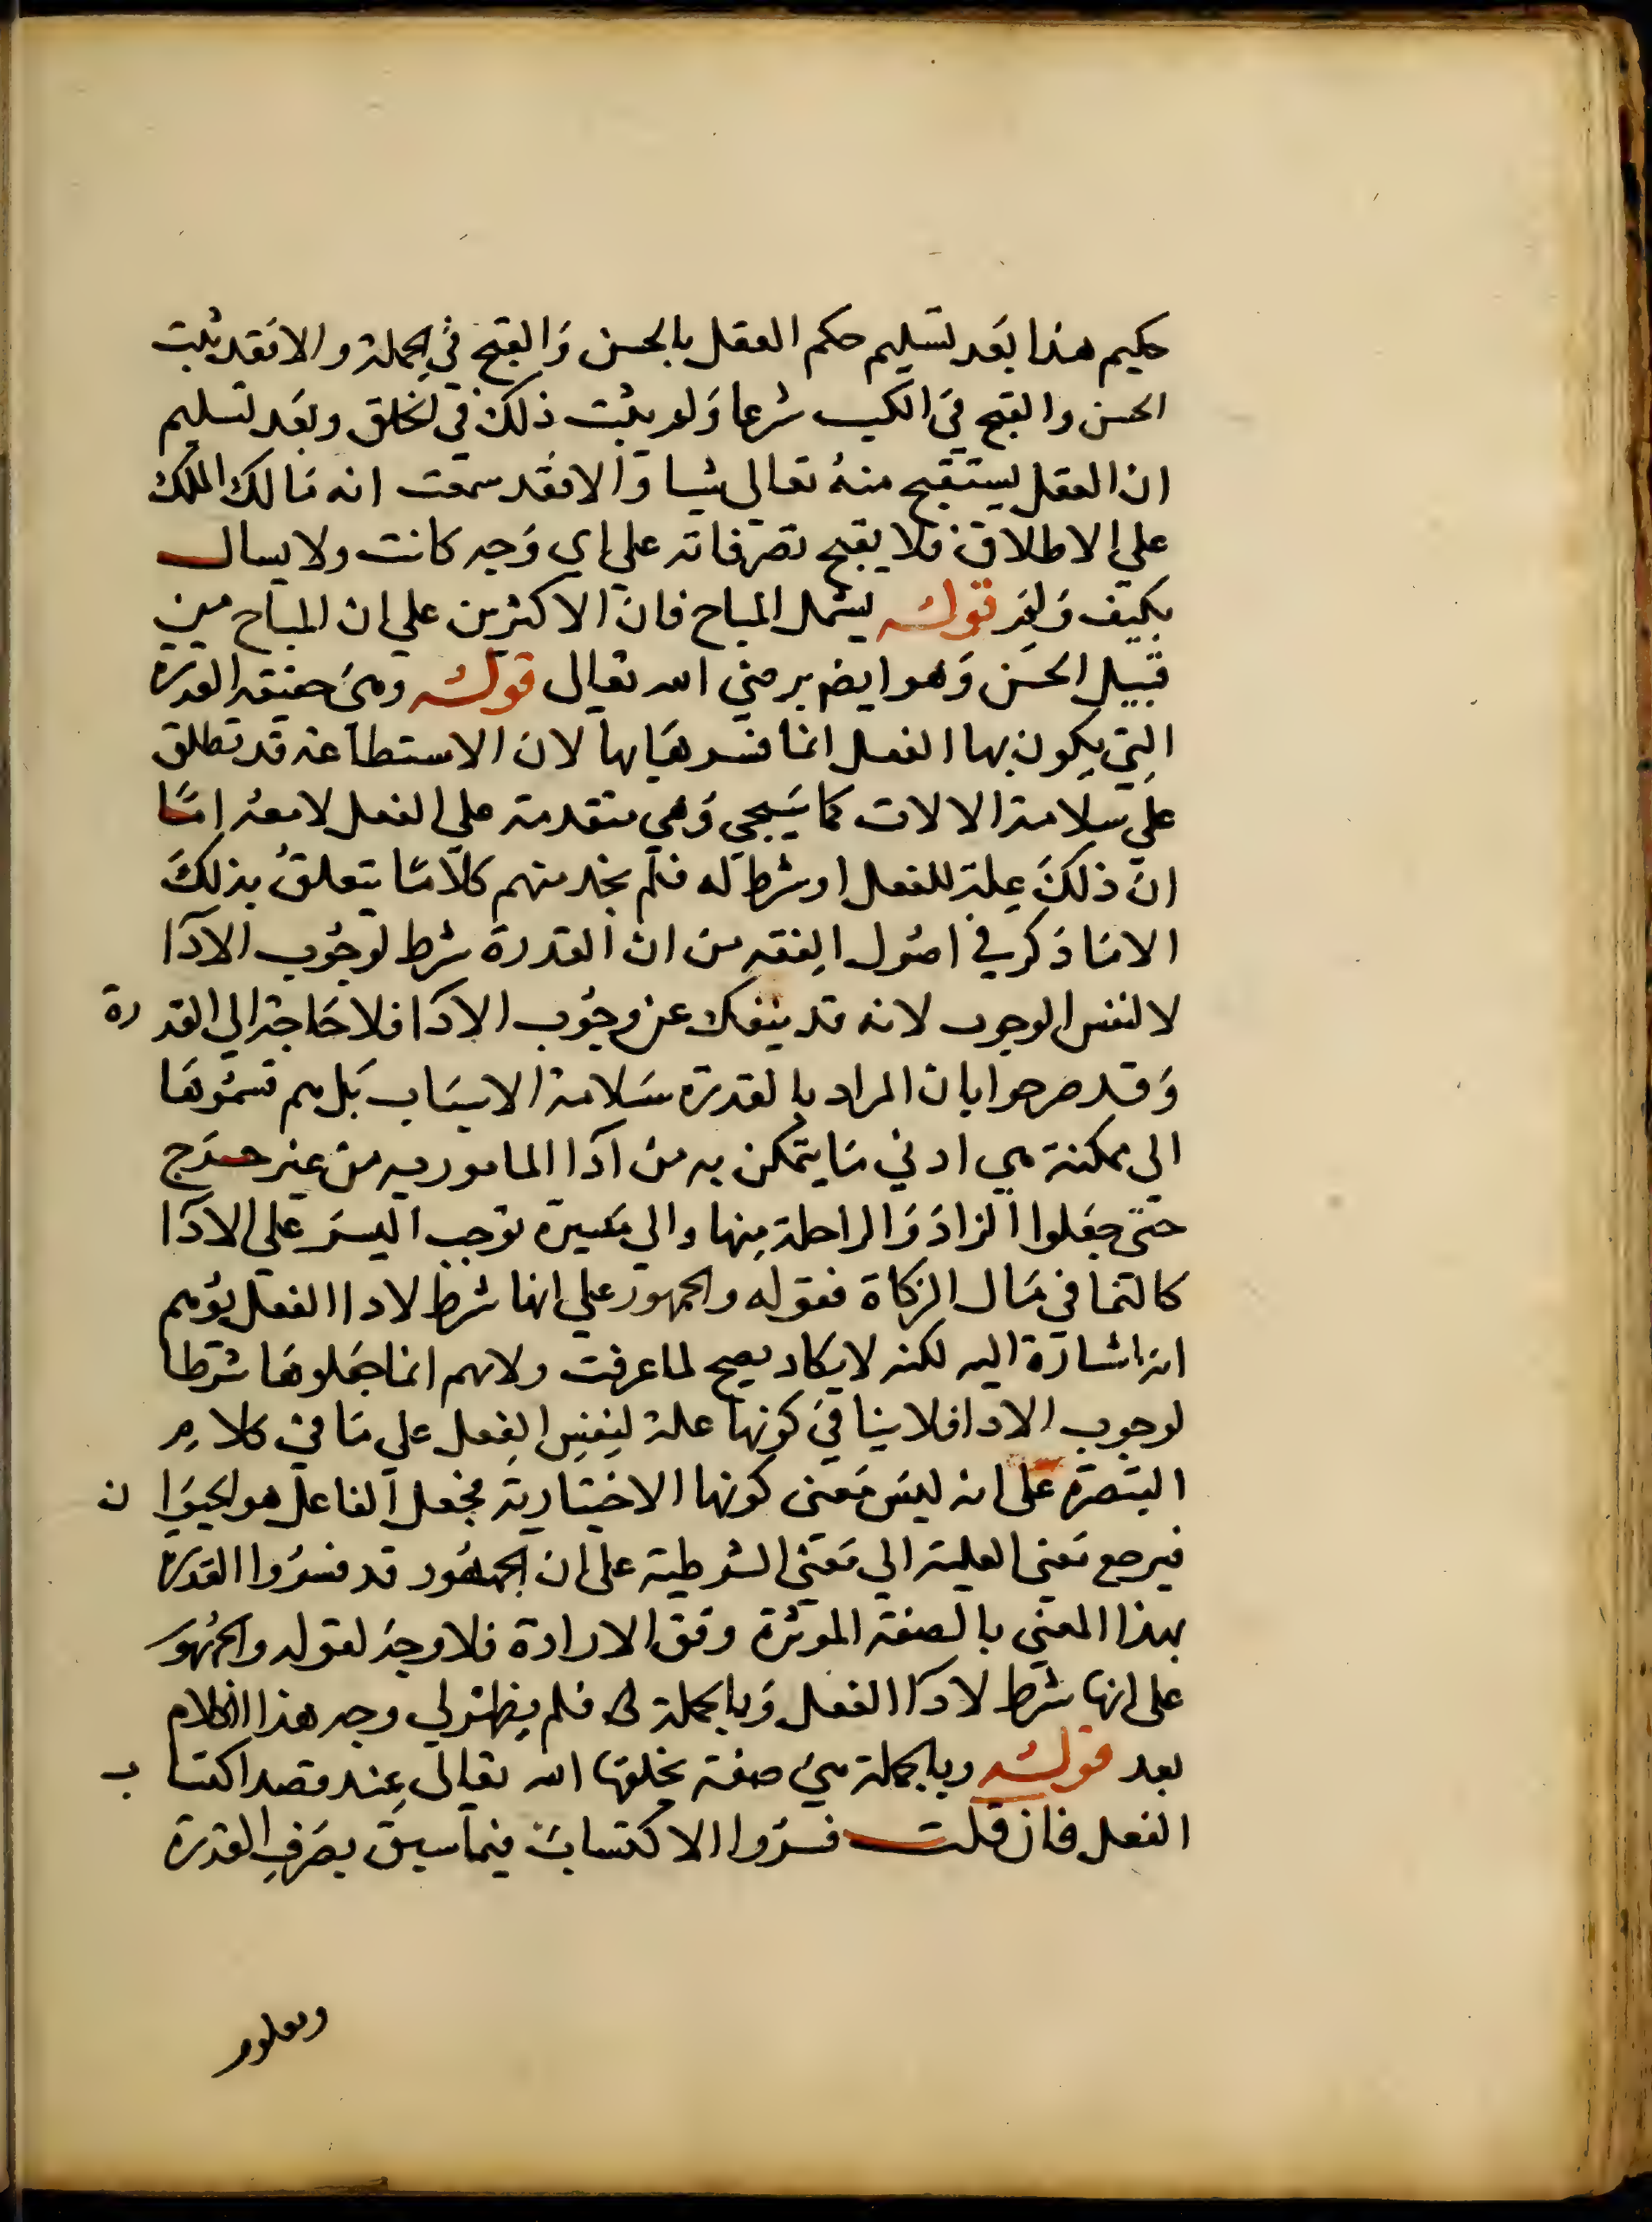 حكيم هذا بعد تسليم حكم العقل بالحسن والقبح في الجملة والا فقد ثبت
الحسن والقبح في الكسب شرعا ولم يثبت ذلك في الخلق وبعد تسليم
ان العقل يستقبح منه تعالى شيا والا فقد سمعت انه مالك الملك
على الاطلاق فلا يقبح تصرفاته على اى وجه كانت ولا يسال
بكيف ولم قوله ليشمل المباح فان الاكثرين على ان المباح من
قبيل الحسن وهو ايضا برضي الله تعالى قوله وهى حقيقة القدرة
التي يكون بها الفعل انما فسرها بها لان الاستطاعة قد تطلق
على سلامة الالات كما سيجي وهي متقدمة على الفعل لا معه اما
ان ذلك علة للفعل او شرط له فلم نجد منهم كلاما يتعلق بذلك
الا ما ذكر في اصول الفقه من ان القدرة شرط لوجوب الادا
لا لنفس الوجوب لانه قد ينفك عن وجوب الادا فلا حاجة الى القدرة
وقد صرحوا بان المراد بالقدرة سلامة الاسباب بل هم قسموها
الى ممكنة هي ادني ما يتمكن به من ادا المامور به من غير حرج
حتى جعلوا الزاد والراحلة منها والي ميسرة توجب اليسر على الادا
كالنما في مال الزكاة فقوله والجمهور على انها شرط لادا الفعل يوهم
انه اشارة اليه لكنه لا يكاد يصح لما عرفت ولانهم انما جعلوها شرطا
لوجوب الادا فلا ينافي كونها علة لنفس الفعل على ما في كلام
التبصرة على انه ليس معنى كونها الاختيارية فجعل الفاعل هو الحيوان
فيرجع معنى العلية الى معنى الشرطية على ان الجمهور قد فسروا القدرة
بهذا المعنى بالصفة الموثرة وفق الارادة فلا وجه لقوله والجمهور
على انها شرط لادا الفعل وبالجملة فلم يظهر لي وجه هذا الكلام
بعد قوله وبالجملة هي صفة يخلقها الله تعالى عند قصد اكتساب
الفعل فان قلت فسروا الاكتساب فيما سبق بصرف القدرة